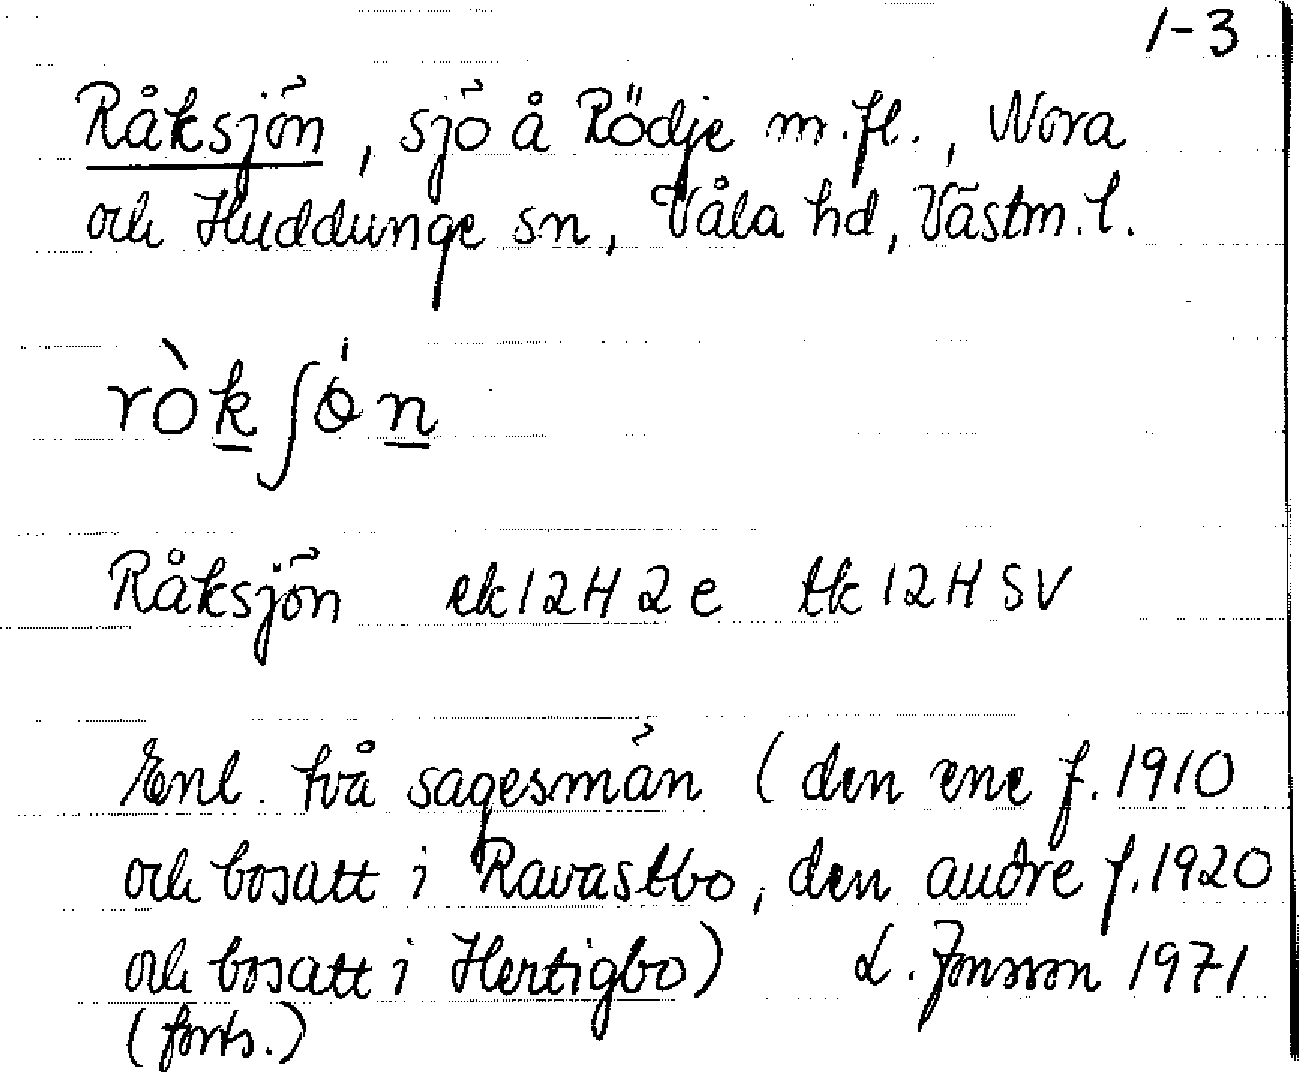 1-3
Råksjön, sjö å Rödje m.fl., Nora
och Huddunge sn, Våla hd, Västm. l.
ròkʃɵ́n
Råksjön ek 12H 2e tk 12H SV
Enl. två sagesmän (den ene f. 1910
och bosatt i Ravastbo, den andre f. 1920
och bosatt i Hertigbo) L. Jonsson 1971
(forts.)